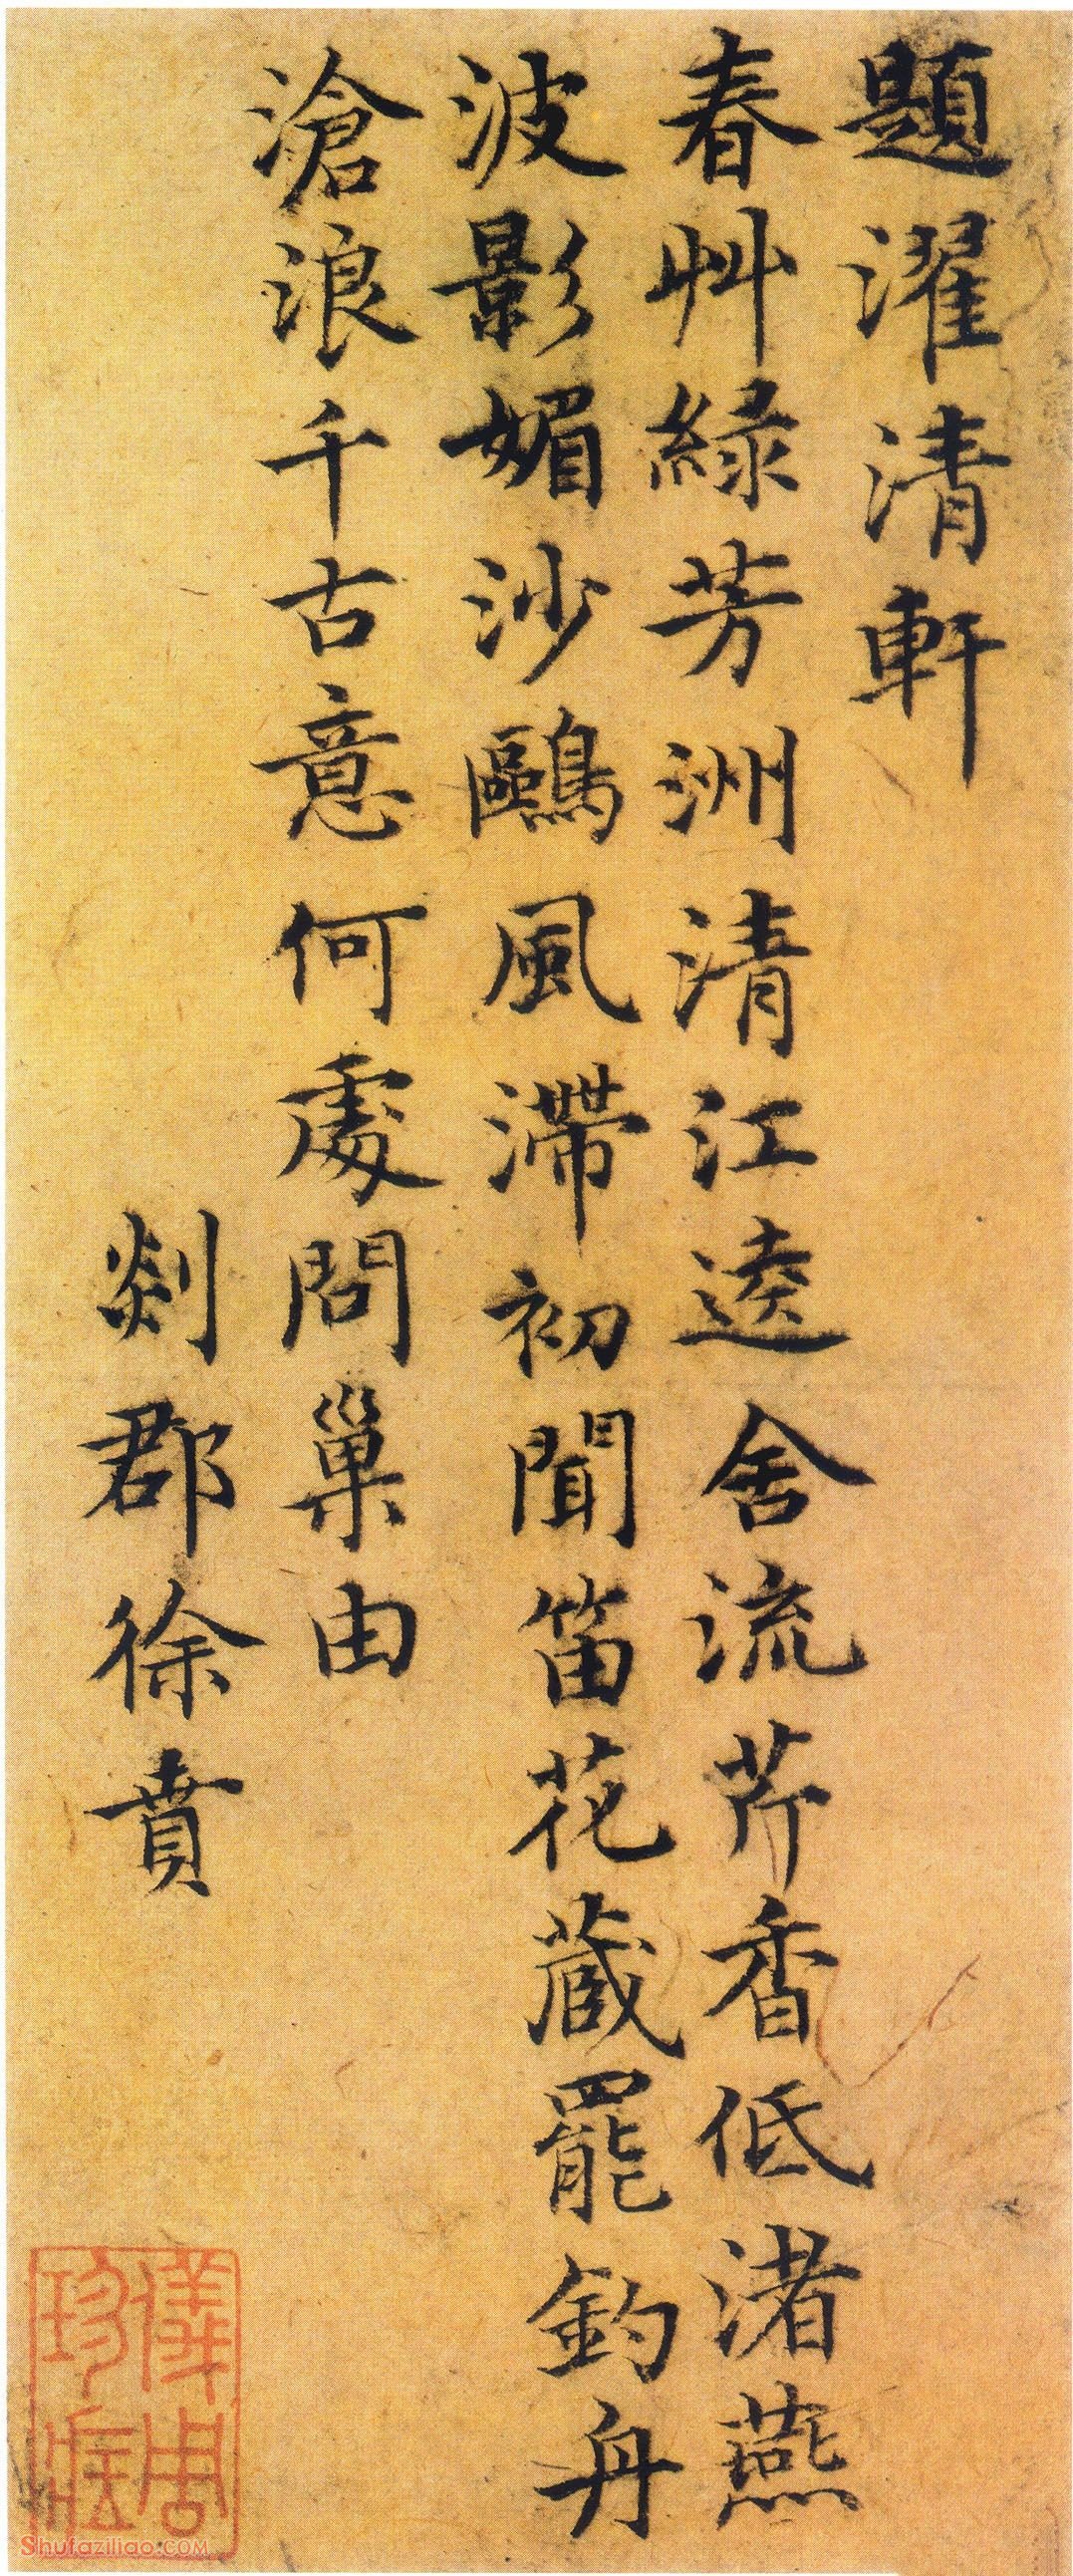 題濯清軒
春艸綠芳洲清江遶舍流芹香低渚燕
波影媚沙鷗風滯初聞笛花蔵罷釣舟
滄浪千古意何處問巢由
剡郡徐賁
儀周珍藏
Shufaziliao.COM